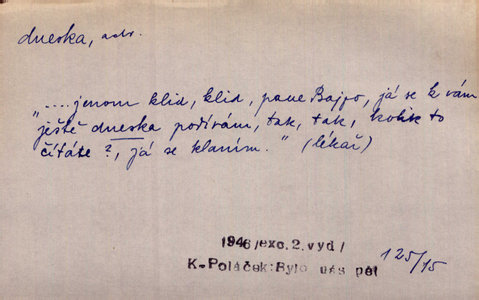 dneska, adv.
"....jenom klid, klid, pane Bajzo, já se k vám
ještě dneska podívám, tak, tak, kolik to
čítáte ?, já se klaním." (lékař)
1946/exc.2.vyd/
K.Poláček:Bylo nás pět
125/15